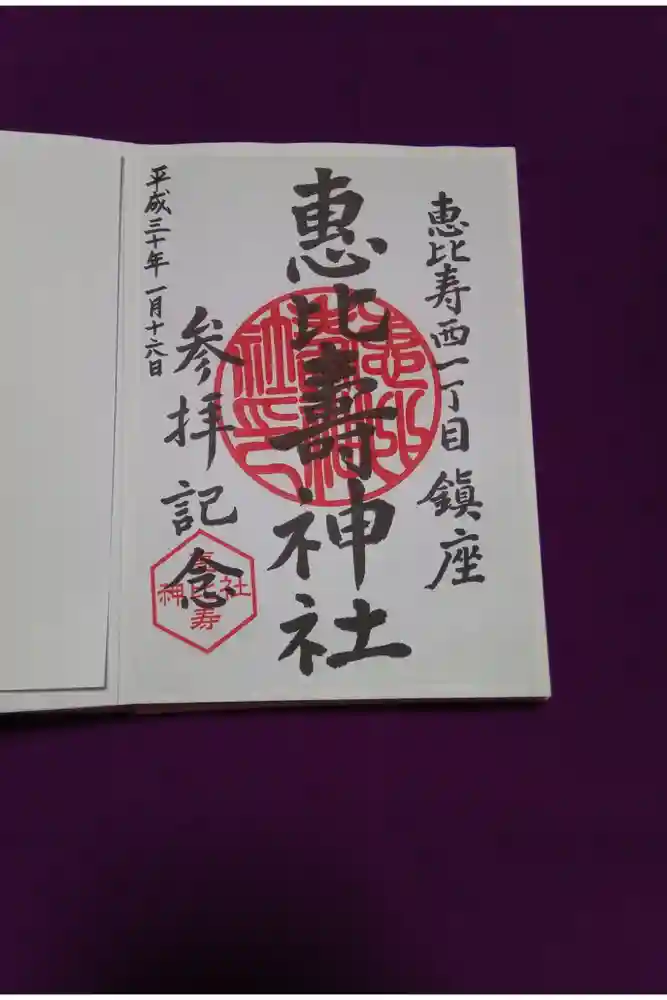 恵比寿西一丁目鎮座
恵比壽神社
参拝記念
平成三十年一月十六日
恵比寿
神社